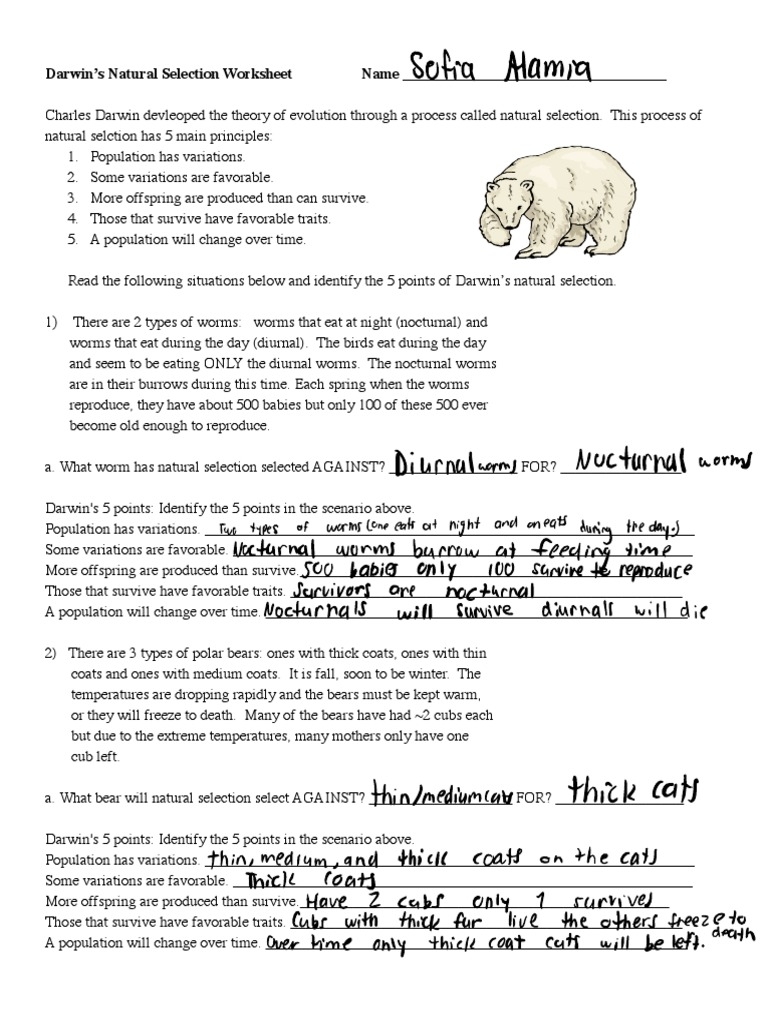 Darwin's Natural Selection Worksheet Name Sofia Alamia
Charles Darwin devleoped the theory of evolution through a process called natural selection. This process of
natural selction has 5 main principles:
1. Population has variations.
2. Some variations are favorable.
3. More offspring are produced than can survive.
4. Those that survive have favorable traits.
5. A population will change over time.
Read the following situations below and identify the 5 points of Darwin's natural selection.
1) There are 2 types of worms: worms that eat at night (nocturnal) and
worms that eat during the day (diurnal). The birds eat during the day
and seem to be eating ONLY the diurnal worms. The nocturnal worms
are in their burrows during this time. Each spring when the worms
reproduce, they have about 500 babies but only 100 of these 500 ever
become old enough to reproduce.
a. What worm has natural selection selected AGAINST? Diurnal worms FOR? Nocturnal worms
Darwin's 5 points: Identify the 5 points in the scenario above.
Population has variations. Two types of worms (one eats at night and on eats during the day.)
Some variations are favorable. Nocturnal worms burrow at feeding time
More offspring are produced than survive. 500 babies only 100 survive to reproduce
Those that survive have favorable traits. Survivors are nocturnal
A population will change over time. Nocturnals will survive diurnals will die
2) There are 3 types of polar bears: ones with thick coats, ones with thin
coats and ones with medium coats. It is fall, soon to be winter. The
temperatures are dropping rapidly and the bears must be kept warm,
or they will freeze to death. Many of the bears have had ~2 cubs each
but due to the extreme temperatures, many mothers only have one
cub left.
a. What bear will natural selection select AGAINST? thin/medium cats FOR? thick cats
Darwin's 5 points: Identify the 5 points in the scenario above.
Population has variations. thin, medium, and thick coats on the cats
Some variations are favorable. Thick coats
More offspring are produced than survive. Have 2 cubs only 1 survives
Those that survive have favorable traits. Cubs with thick fur live the others freeze to death
A population will change over time. Over time only thick coat cats will be left.